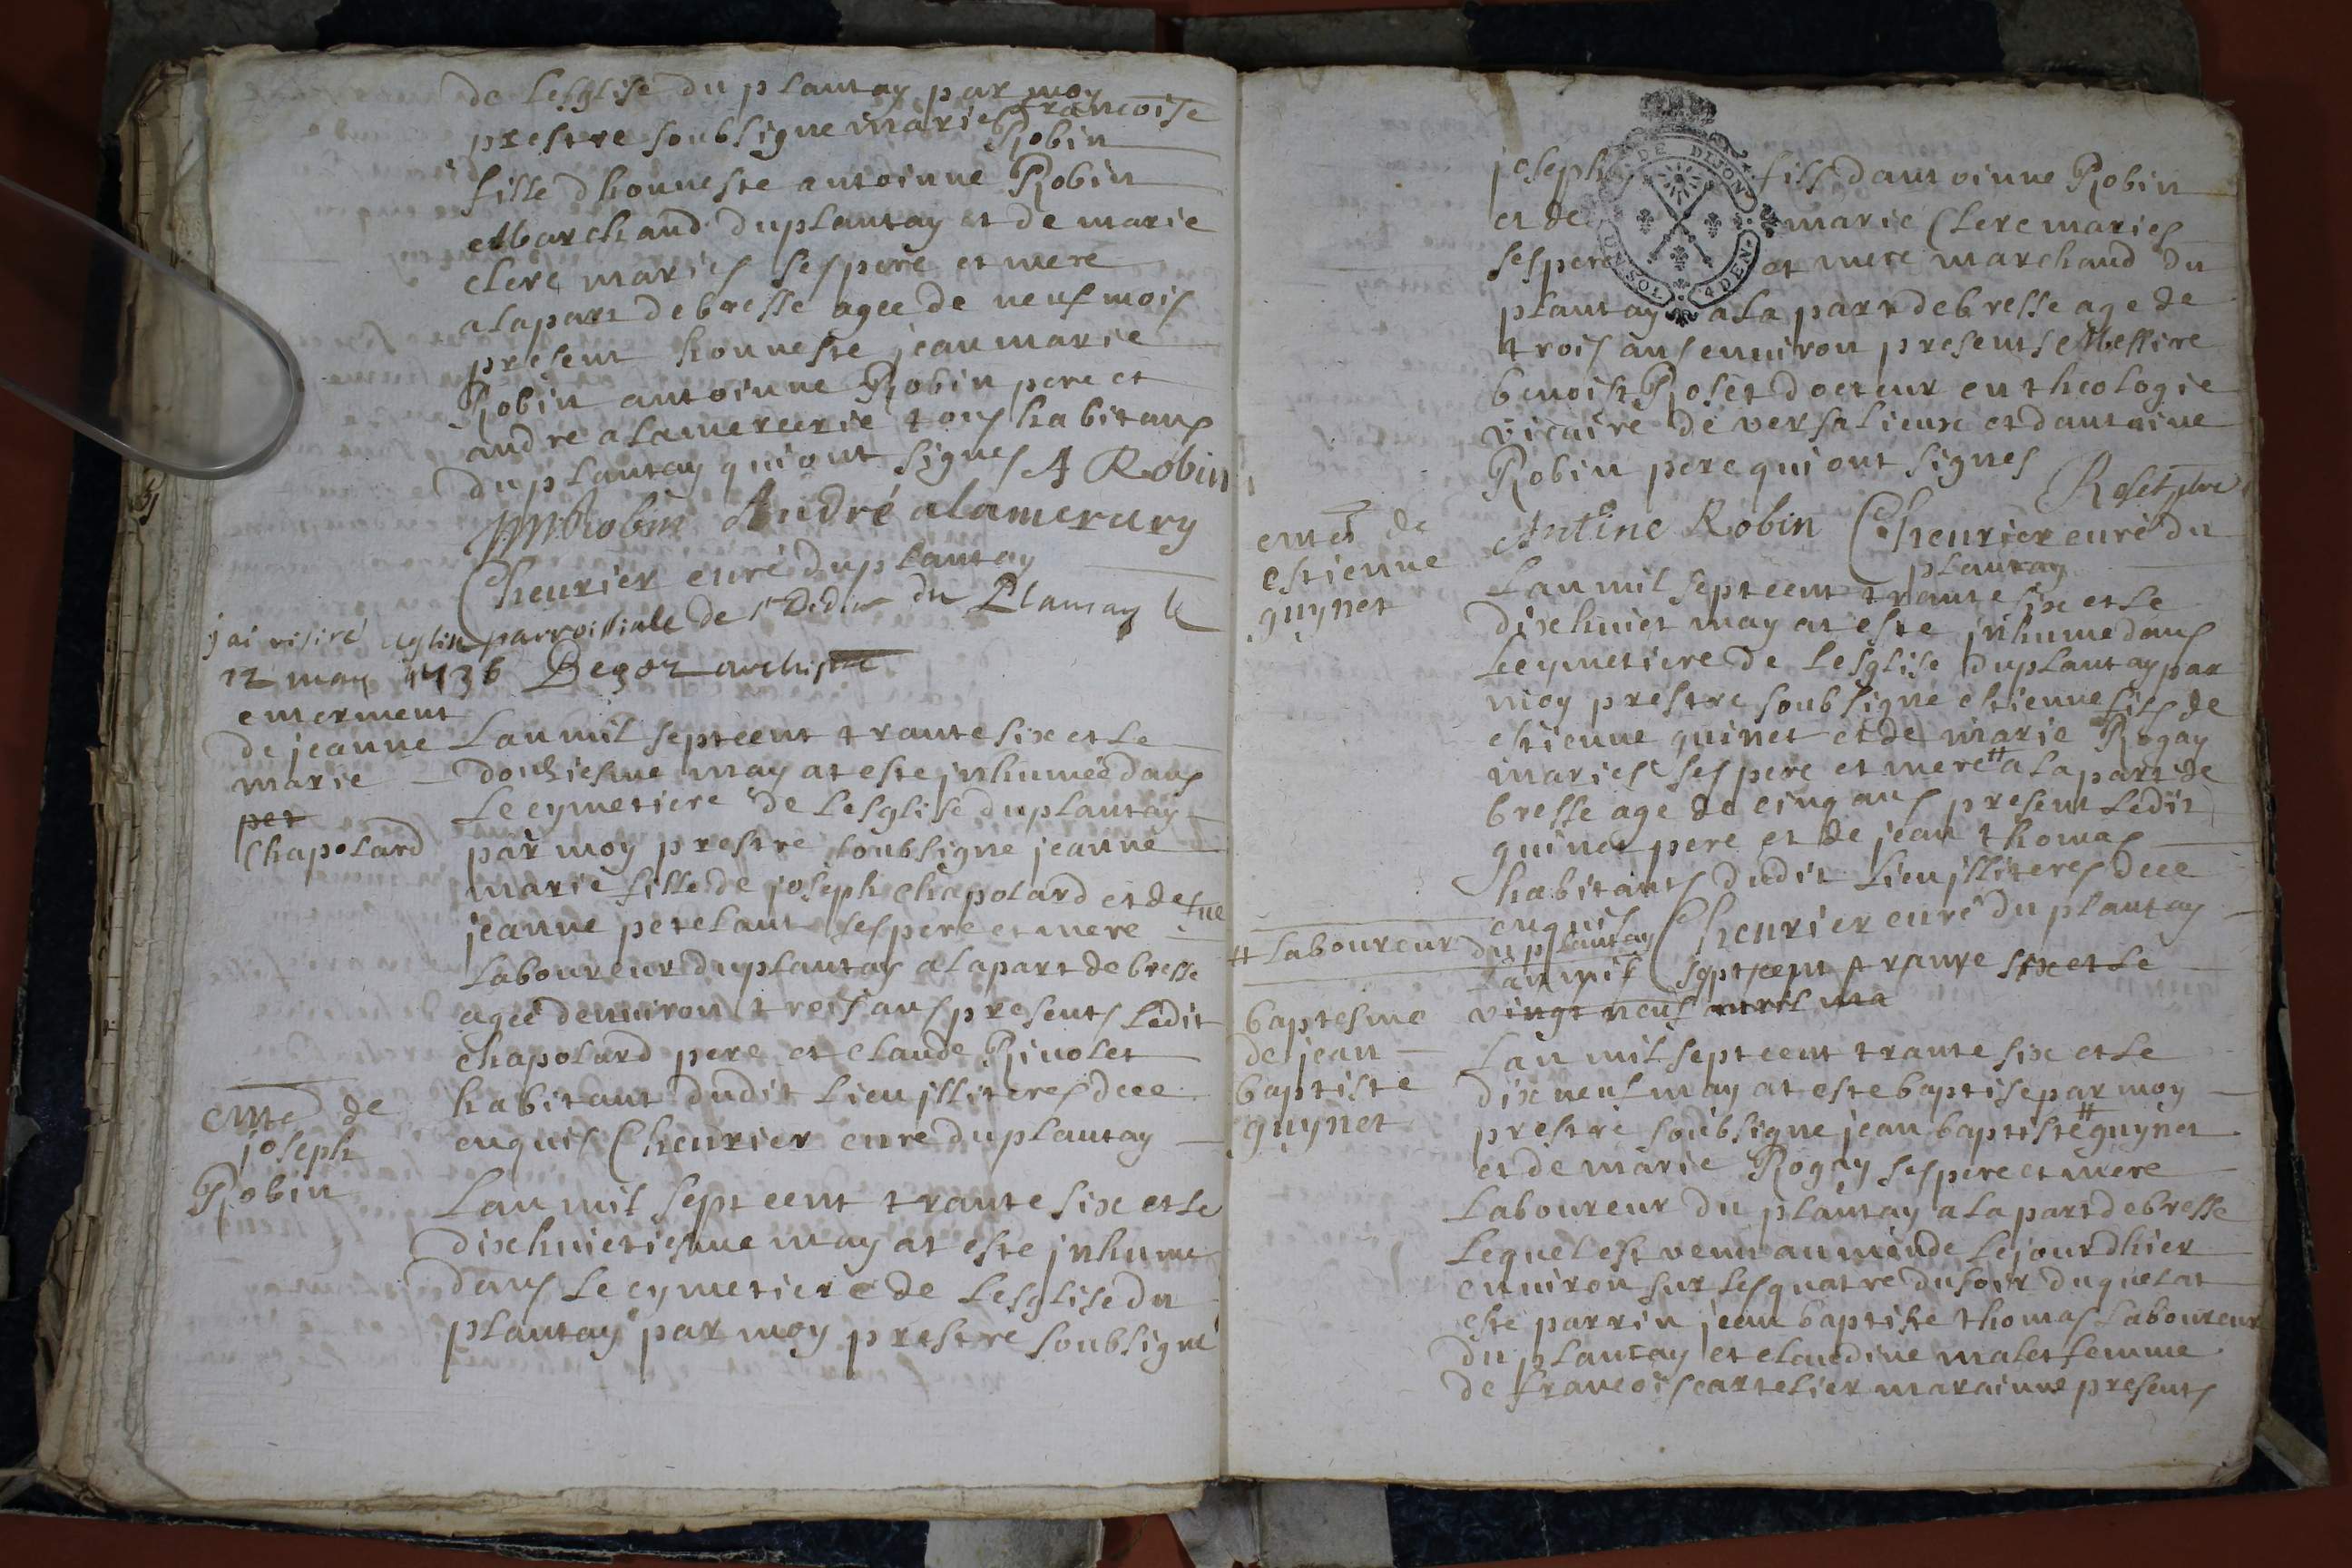 de lesglise du plantay par moy
prestre soubsigne marie francoise
Robin
fille dhonneste antoinne Robin
Marchand du plantay et de marie
clerc maries ses pere et mere
a la part de bresse agee de neuf mois
present honneste jean marie
Robin antoinne Robin pere et
andre alamercerie tous habitans
du plantay qui ont signes A Robin
JM Robin André alamercery
Cheurier curé du plantay
j'ai visité leglise parroissiale de st Didier du Plantay le
12 may 1736 archiptre
enterment
de jeanne
marie
pet
Chapolard
Lan mil sept cent trante six et le
douziesme may at este jnhumée dans
le cymetiere de lesglise du plantay
par moy prestre soubsigne jeanne
marie fille de joseph chapolard et de fue
jeanne petelant ses pere et mere
laboureur du plantay a la part de bresse
agee denuiron trois ans presents ledit
chapolard pere et claude Riuolet
habitant dudit lieu jlliteres dece
enquis Cheurier curé du plantay
entt de
joseph
Robin
Lan mil sept cent trante six et le
dixhuictiesme may at este jnhumé
dans le cymetiere de lesglise du
plantay par moy prestre soubsigné
DE DIJON
UN SOL 4 DEN.
joseph fils dantoinne Robin
et de marie Clerc maries
ses pere et mere marchand du
plantay a la part de bresse age de
trois ans enuiron presents Messire
benoist Roset docteur en theologie
vicaire de versalieux et dantoine
Robin pere qui ont signes
Roset ptre
Antine Robin Cheurier curé du
plantay
entt de
estienne
guynet
Lan mil sept cent trante six et le
dixhuict may at este jnhume dans
le cymetiere de lesglise du plantay par
moy prestre soubsigné estienne fils de
estienne guinet et de marie Rogay
maries ses pere et mere # a la part de
bresse age de cinq ans present ledit
guinet pere et de jean thomas
habitants dudit lieu jlliteres dece
enquis Cheurier curé du plantay
# laboureur du plantay
Lan mil sept cent trante six et le
vingt neuf auril ma
baptesme
de jean
baptiste
guynet
Lan mil sept cent trante six et le
dix neuf may at este baptise par moy
prestre soubsigne jean baptiste # guynet
et de marie Rogay ses pere et mere
laboureur du plantay a la part de bresse
lequel est venu au monde le jour dhier
enuiron sur les quatre du soir duquel at
este parrin jean baptiste thomas laboureur
du plantay et claudine malet femme
de francois cartelier marainne presents